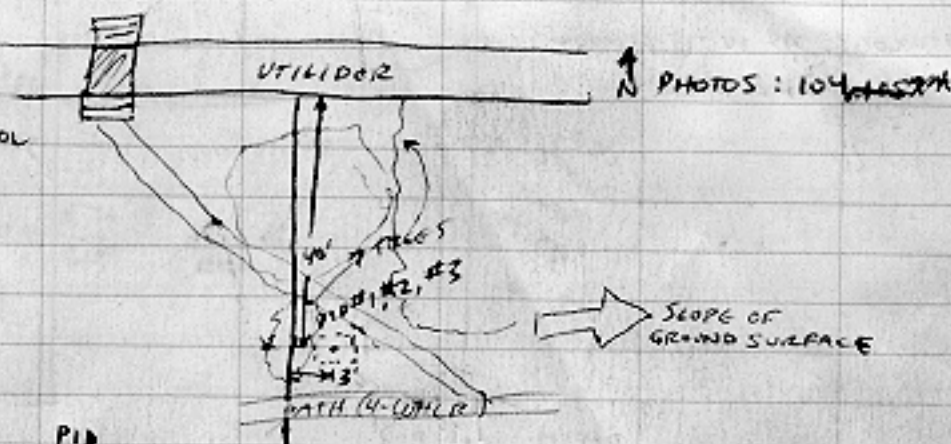 UTILIDOR
N PHOTOS : 104
OL
40'
#1, #2, #3
SLOPE OF
GROUND SURFACE
3'
PATH (4-WHLR)
PID